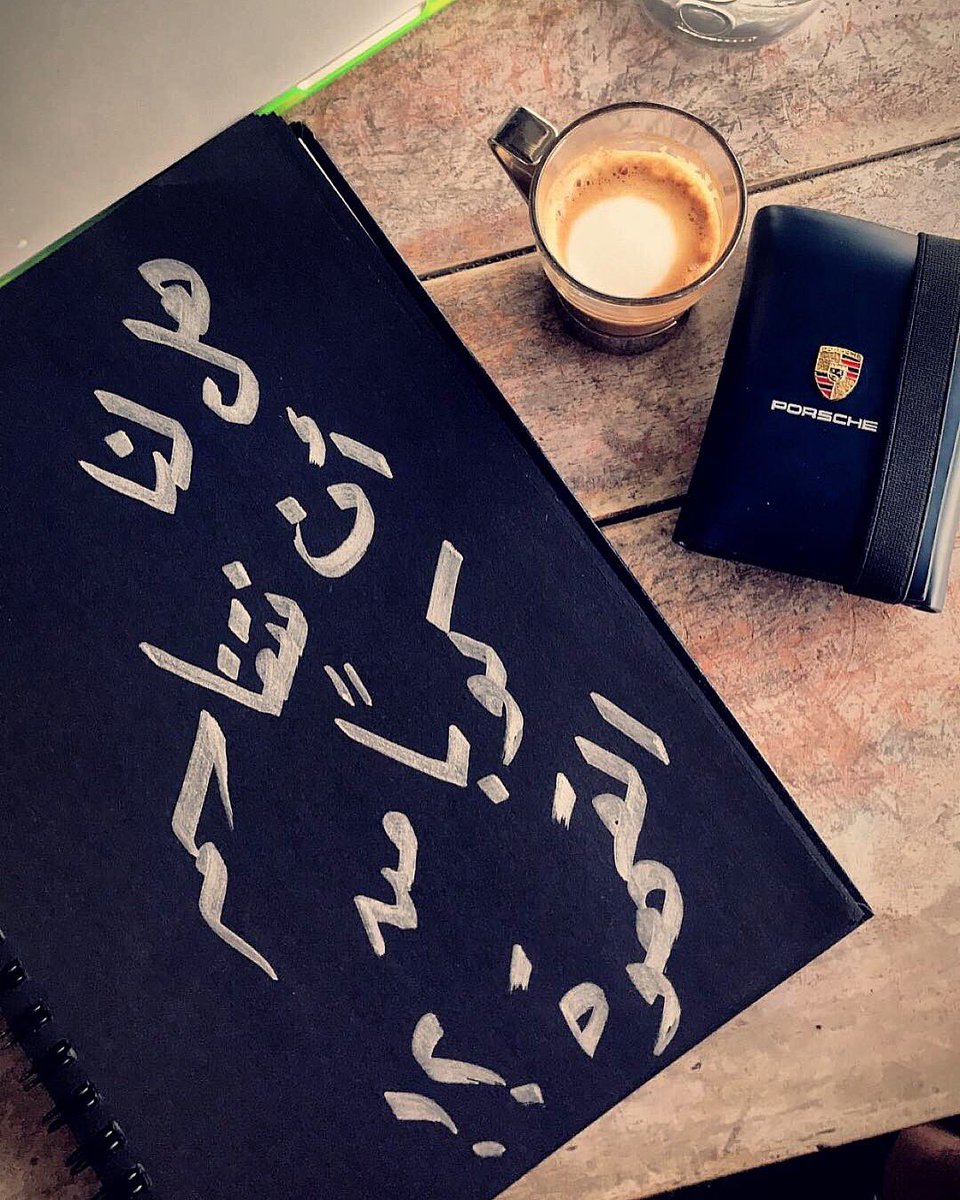 هل لنا
أن نتقاسم
كوباً من
القهوة
PORSCHE